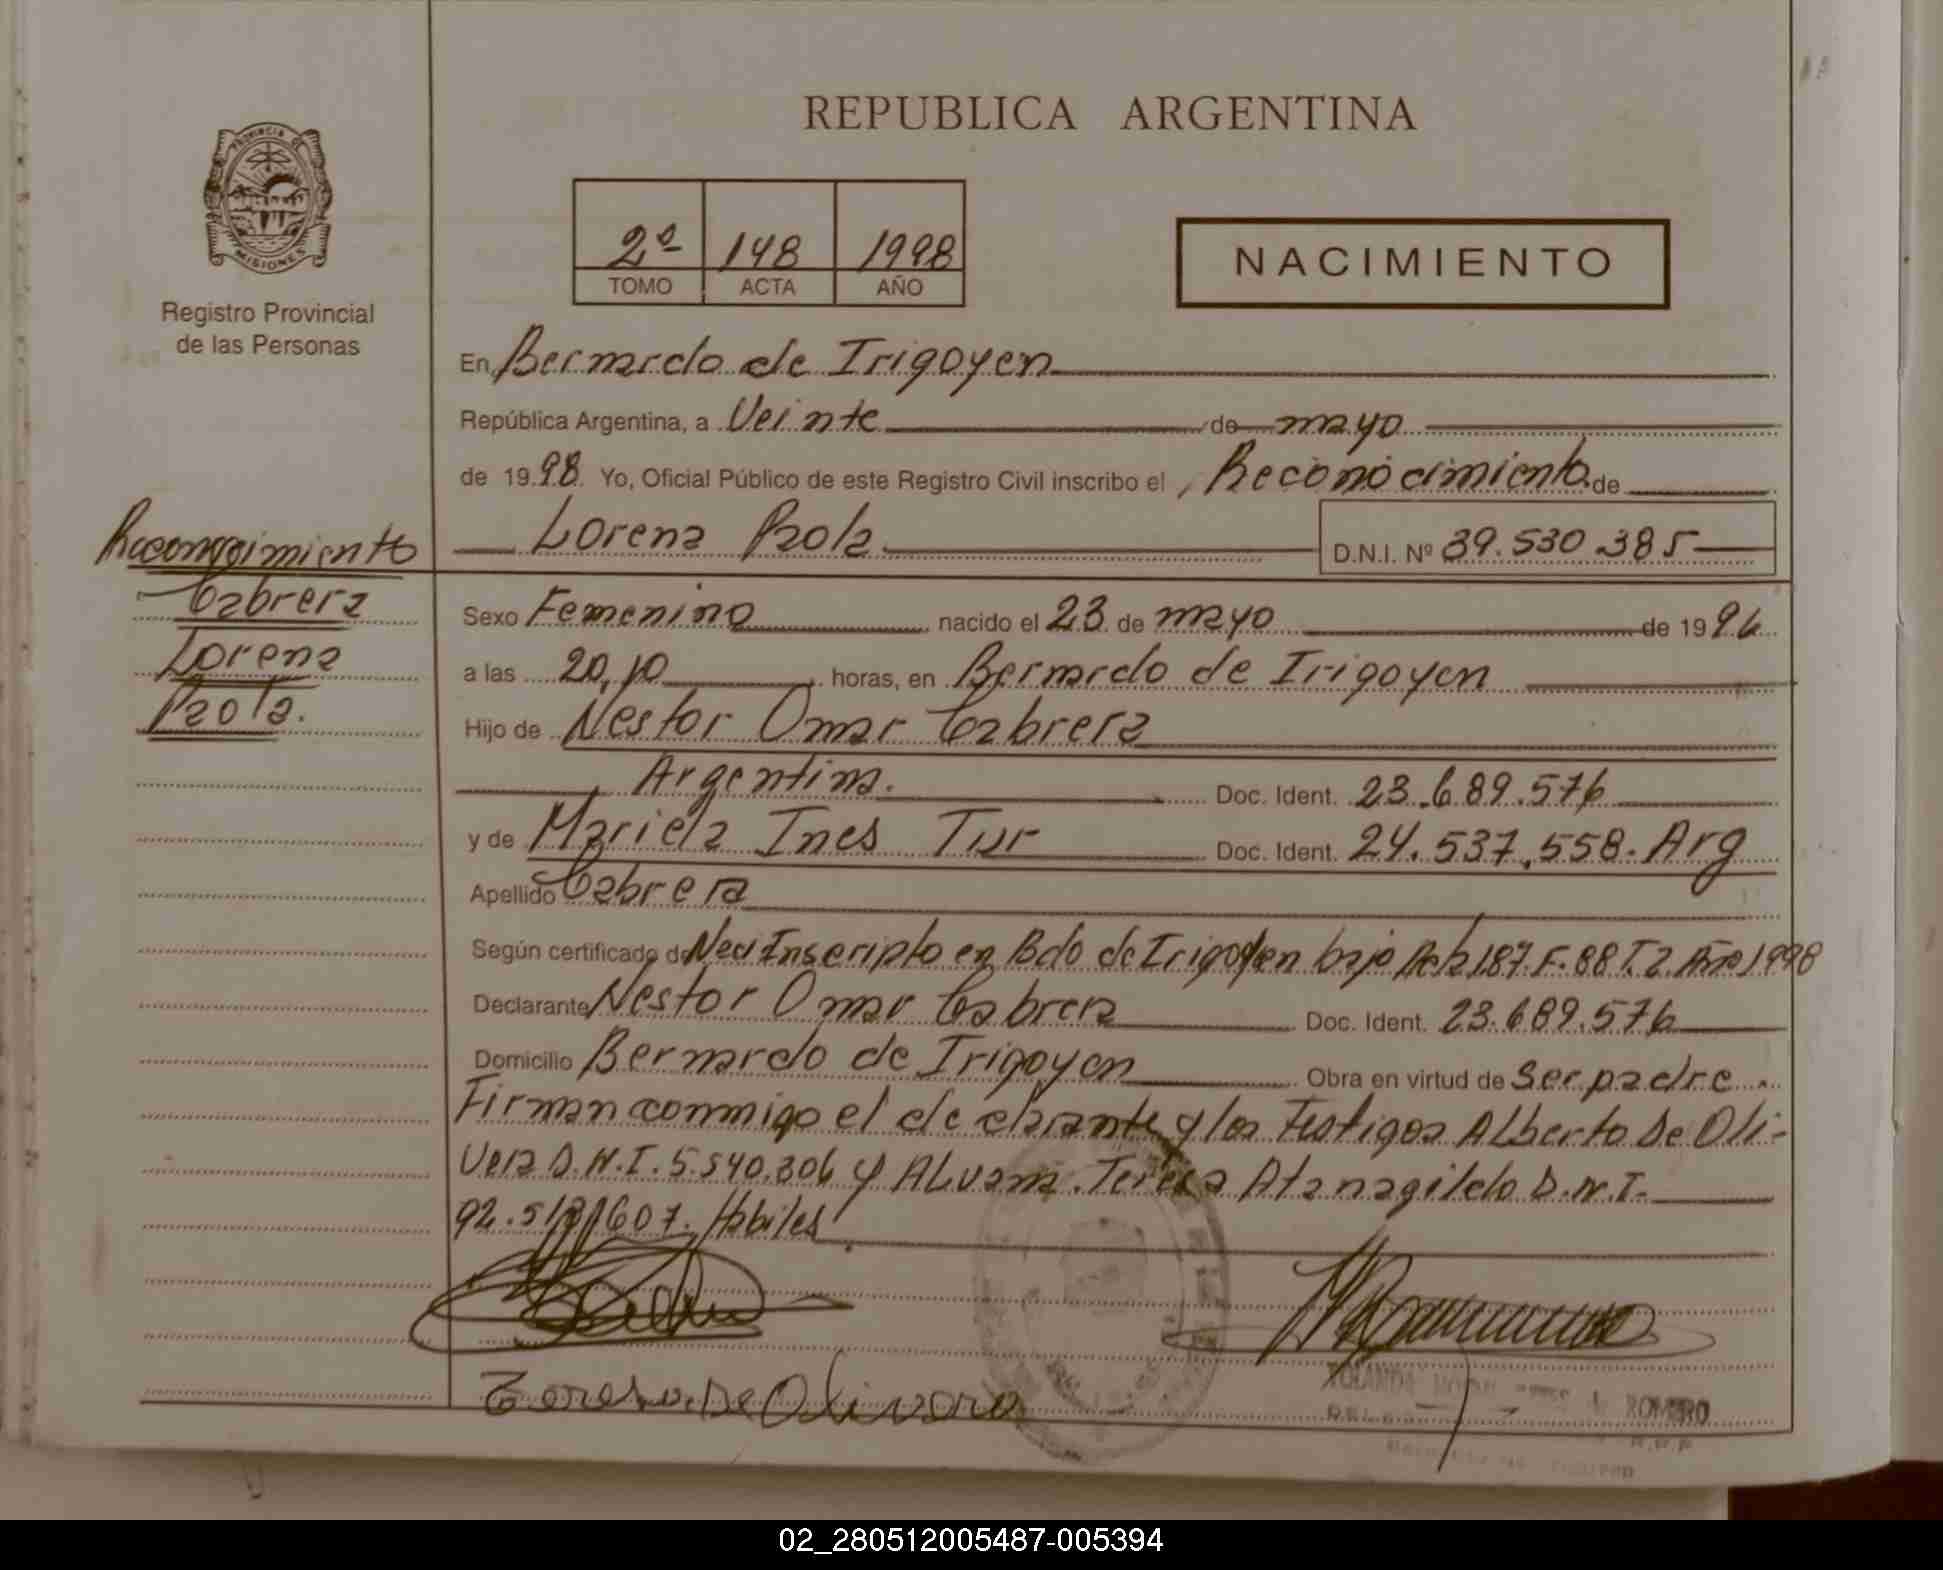 REPUBLICA ARGENTINA
PROVINCIA DE
MISIONES
Registro Provincial
de las Personas
2º 148 1998
TOMO ACTA AÑO
NACIMIENTO
En Bernardo de Irigoyen
República Argentina, a Veinte de mayo
de 1998 Yo, Oficial Público de este Registro Civil inscribo el Reconocimiento de
Lorena Paola D.N.I. Nº 39.530.385
Reconocimiento
Cabrera
Lorena
Paola.
Sexo Femenino nacido el 23 de mayo de 1996
a las 20,10 horas, en Bernardo de Irigoyen
Hijo de Nestor Omar Cabrera
Argentina. Doc. Ident. 23.689.576
y de Mariela Ines Tur Doc. Ident. 24.537.558. Arg
Apellido Cabrera
Según certificado de Inscripto en Bdo de Irigoyen bajo Acta 187 F. 88 T. 2 Año 1998
Declarante Nestor Omar Cabrera Doc. Ident. 23.689.576
Domicilio Bernardo de Irigoyen Obra en virtud de Ser padre.
Firman conmigo el declarante y los Testigos Alberto De Oli-
vera D.N.I. 5.540.306 y Alvana Teresa Atanagildo D.N.I.
607. Habiles
Teresa De Olivera
YOLANDA ROMERO
02_280512005487-005394